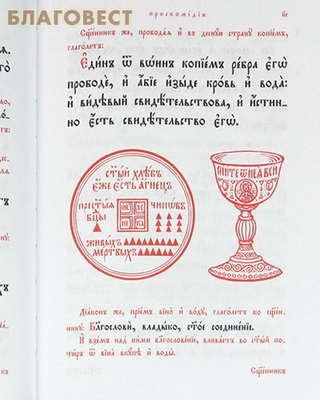 БЛАГОВЕСТ
проскомідіа
Сщ҃е́нникъ же, прободаѧ̀ и҆̀ въ деснꙋ́ю странꙋ̀ копїе́мъ,
глаго́летъ:
Е҆ди́нъ ѿ во́инъ копїе́мъ ре́бра є҆гѡ̀
прободѐ, и҆ а҆́бїе и҆зы́де кро́вь и҆ вода̀:
и҆ ви́дѣвый свидѣ́тельствова, и҆ и҆́стин-
но є҆́сть свидѣ́тельство є҆гѡ̀.
ст҃ы́й хлѣ́бъ
є҆́же є҆́сть а҆́гнецъ
прест҃ы́ѧ
бцⷣы
чинѡ́въ
живы́хъ
ме́ртвыхъ
ПІЙТЕ Ѿ НЕѦ ВСИ
Дїа́конъ же, прїе́мъ вїно̀ и҆ во́дꙋ, глаго́летъ ко сщ҃е́н-
никꙋ: Благословѝ, влады́ко, ст҃о́е соедине́нїе.
И҆ взе́мъ над̾ ни́ми благослове́нїе, влива́етъ во ст҃ы́й по-
ти́ръ ѿ вїна̀ вкꙋ́пѣ и҆ воды̀.
Сщ҃е́нникъ